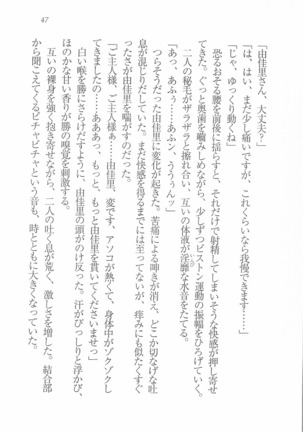 47
「由佳里さん、大丈夫？」
「は、はい、まだ少し痛いですが、これくらいなら我慢できます……」
「じゃ、ゆっくり動くね」
恐るおそる腰を前後に揺らすと、それだけで射精してしまいそうな快感が押し寄せ
てきた。ぐっと奥歯を噛みしめながら、少しずつピストン運動の振幅をひろげていく。
二人の秘毛がザラザラと擦れ合い、互いの体液が淫靡な水音をたてる。
「あっ、あふぅ……あふン、ううぅんッ」
つらそうだった由佳里に変化が起きた。苦痛による呻きが消え、どこか切なげな吐
息が混じりだしていた。まだ快感を得るまでには至ってないが、痒みにも似たくすぐ
ったさが由佳里を喘がすのだった。
「ご主人様、ご主人様……由佳里、変です、アソコが熱くて、身体中がゾクゾクし
てきましたの……あああっ、もっと、もっと由佳里を貫いてくださいませっ」
白い喉を勝にさらけだすように、由佳里の頭がのけ反った。汗がびっしりと浮かび、
ほのかな甘い香りが勝の嗅覚を刺激する。
互いの裸身を強く抱き寄せながら、二人の吐く息が荒く、激しさを増した。結合部
から聞こえてくるピチャピチャという音も、時とともに大きくなっていた。